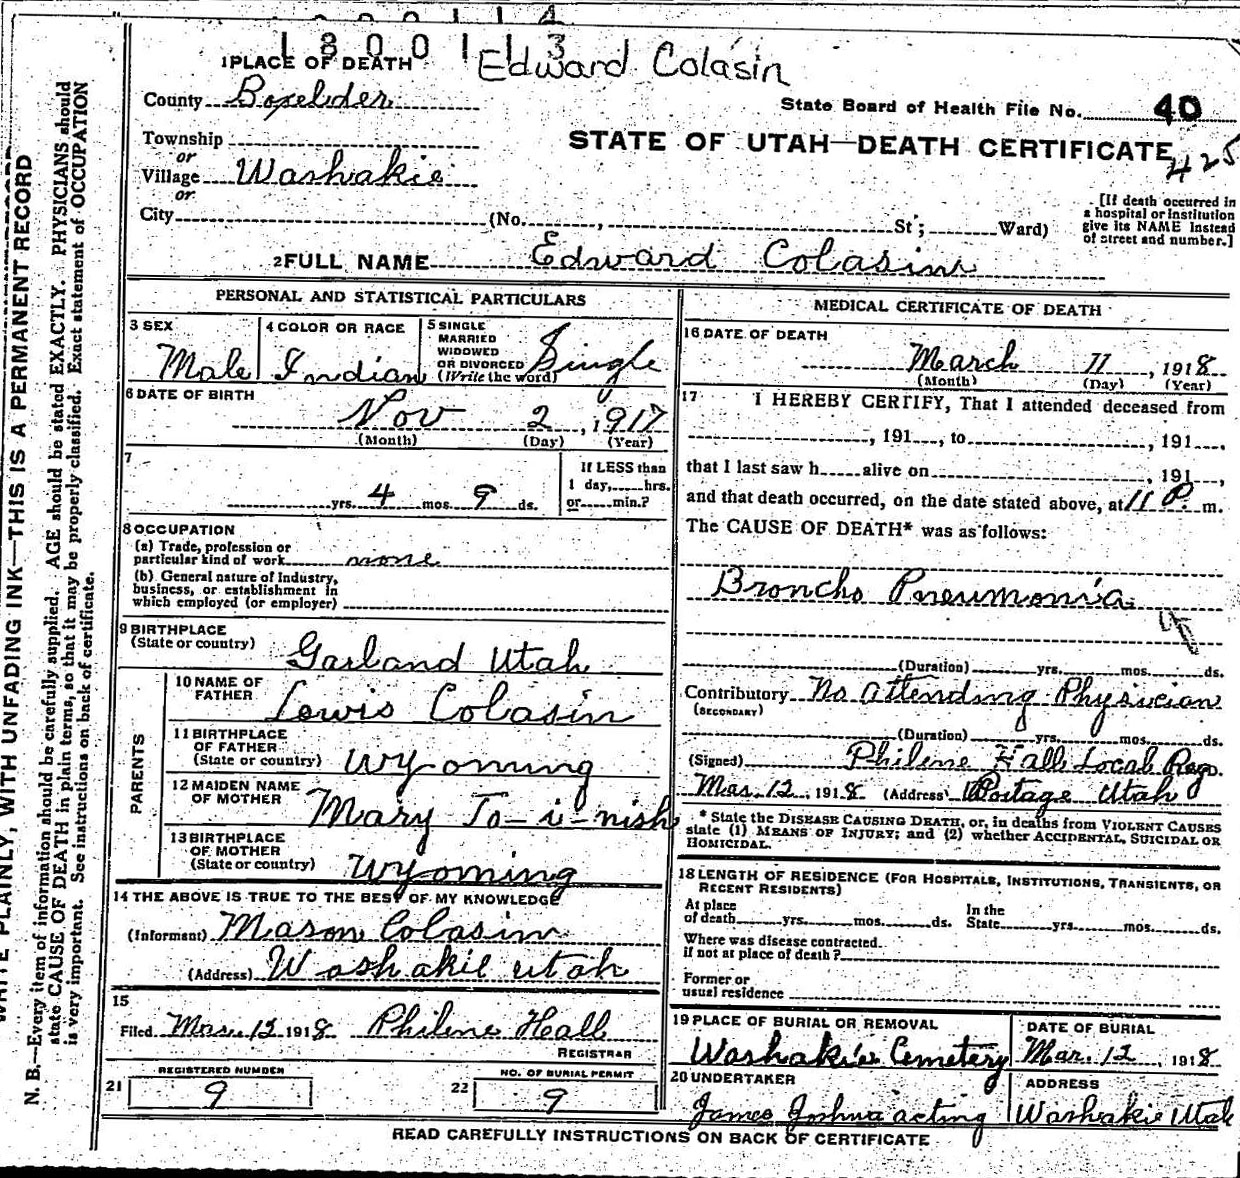 1800113
Edward Colasin
1 PLACE OF DEATH
County Boxelder
State Board of Health File No. 40
Township
or
STATE OF UTAH—DEATH CERTIFICATE
425
Village Washakie
or
City (No. , St; Ward)
[If death occurred in a hospital or institution give its NAME instead of street and number.]
2 FULL NAME Edward Colasin
PERSONAL AND STATISTICAL PARTICULARS
3 SEX
Male
4 COLOR OR RACE
Indian
5 SINGLE
MARRIED
WIDOWED
OR DIVORCED
(Write the word)
Single
6 DATE OF BIRTH
Nov 2, 1917
(Month) (Day) (Year)
7
yrs. 4 mos. 9 ds.
If LESS than
1 day, hrs.
or min.?
8 OCCUPATION
(a) Trade, profession or
particular kind of work none
(b) General nature of Industry,
business, or establishment in
which employed (or employer)
9 BIRTHPLACE
(State or country) Garland Utah
PARENTS
10 NAME OF
FATHER Lewis Colasin
11 BIRTHPLACE
OF FATHER
(State or country) Wyoming
12 MAIDEN NAME
OF MOTHER Mary To-i-nish
13 BIRTHPLACE
OF MOTHER
(State or country) Wyoming
14 THE ABOVE IS TRUE TO THE BEST OF MY KNOWLEDGE
(Informant) Mason Colasin
(Address) Washakie Utah
15
Filed Mar. 12 1918 Philene Hall
REGISTRAR
21 REGISTERED NUMBER
9
22 NO. OF BURIAL PERMIT
9
MEDICAL CERTIFICATE OF DEATH
16 DATE OF DEATH
March 11, 1918
(Month) (Day) (Year)
17 I HEREBY CERTIFY, That I attended deceased from
, 191 , to , 191 ,
that I last saw h alive on , 191 ,
and that death occurred, on the date stated above, at 11 P. m.
The CAUSE OF DEATH* was as follows:
Broncho Pneumonia
(Duration) yrs. mos. ds.
Contributory No attending Physician
(SECONDARY)
(Duration) yrs. mos. ds.
(Signed) Philene Hall Local Reg.
Mar. 12, 1918 (Address) Portage Utah
* State the DISEASE CAUSING DEATH, or, in deaths from VIOLENT CAUSES
state (1) MEANS OF INJURY; and (2) whether ACCIDENTAL, SUICIDAL OR
HOMICIDAL.
18 LENGTH OF RESIDENCE (FOR HOSPITALS, INSTITUTIONS, TRANSIENTS, OR
RECENT RESIDENTS)
At place
of death yrs. mos. ds.
In the
State yrs. mos. ds.
Where was disease contracted
if not at place of death?
Former or
usual residence
19 PLACE OF BURIAL OR REMOVAL
Washakie Cemetery
DATE OF BURIAL
Mar. 12, 1918
20 UNDERTAKER
James Joshua acting
ADDRESS
Washakie Utah
READ CAREFULLY INSTRUCTIONS ON BACK OF CERTIFICATE
WRITE PLAINLY, WITH UNFADING INK—THIS IS A PERMANENT RECORD
N. B.—Every item of information should be carefully supplied. AGE should be stated EXACTLY. PHYSICIANS should
state CAUSE OF DEATH in plain terms, so that it may be properly classified. Exact statement of OCCUPATION
is very important. See instructions on back of certificate.